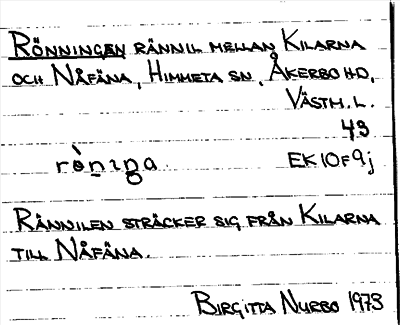 RÖNNINGEN RÄNNIL MELLAN KILARNA
OCH NÅFÄNA, HIMMETA SN, ÅKERBO HD,
VÄSTM. L.
43
rò̤nıṉga EK10F9j
RÄNNILEN STRÄCKER SIG FRÅN KILARNA
TILL NÅFÄNA.
BIRGITTA NURBO 1973